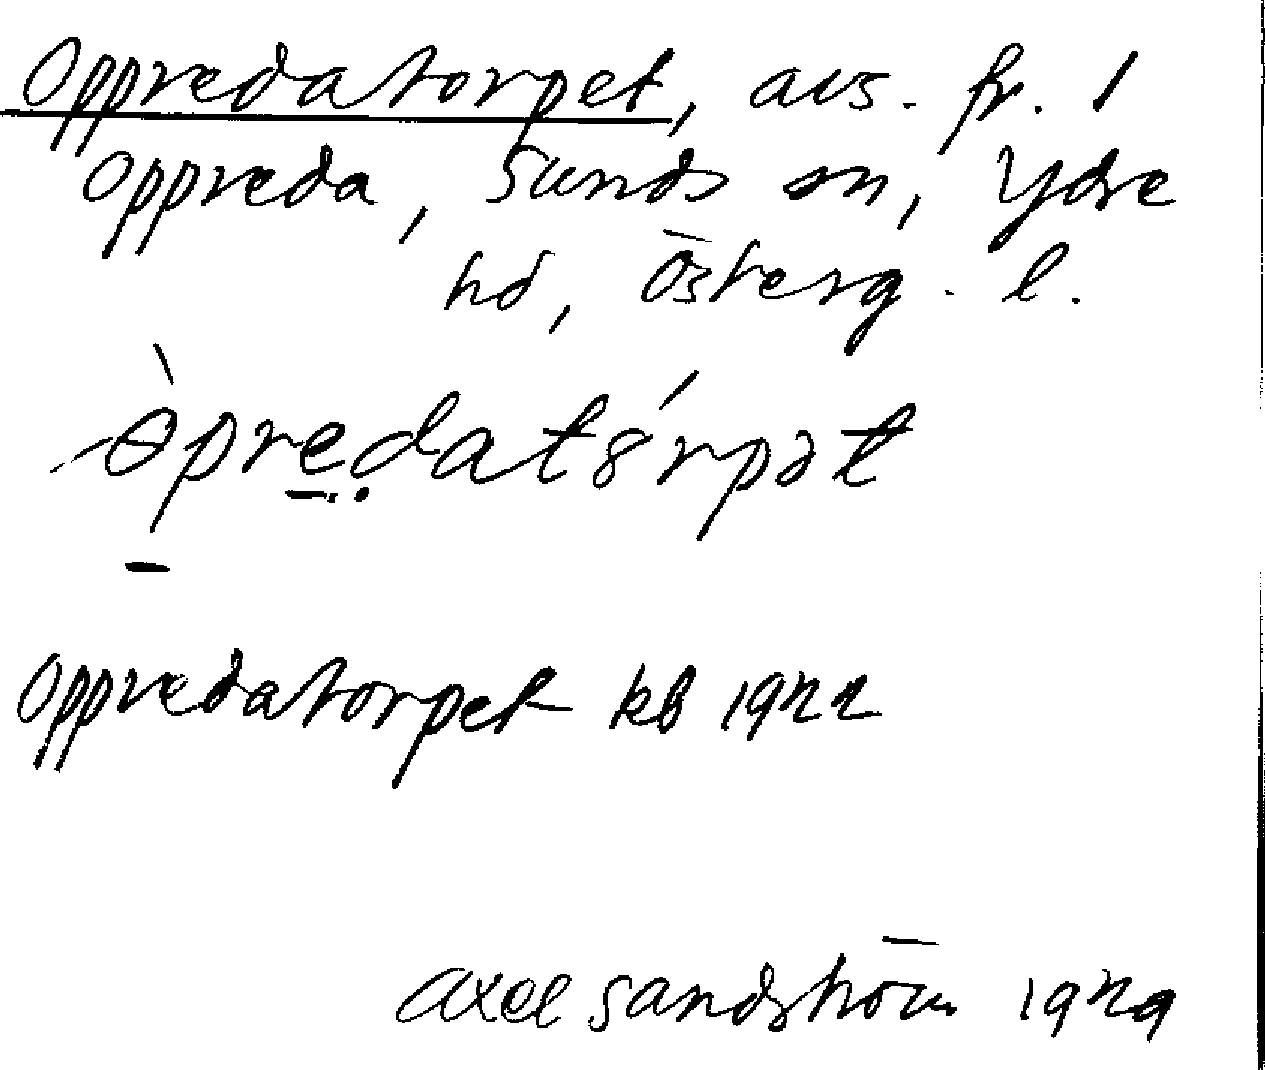 Oppredatorpet, avs. fr. 1
Oppreda, Sunds sn, Ydre
hd, Österg. l.
òpredató́rpət
Oppredatorpet kb 1922
Axel Sandström 1929